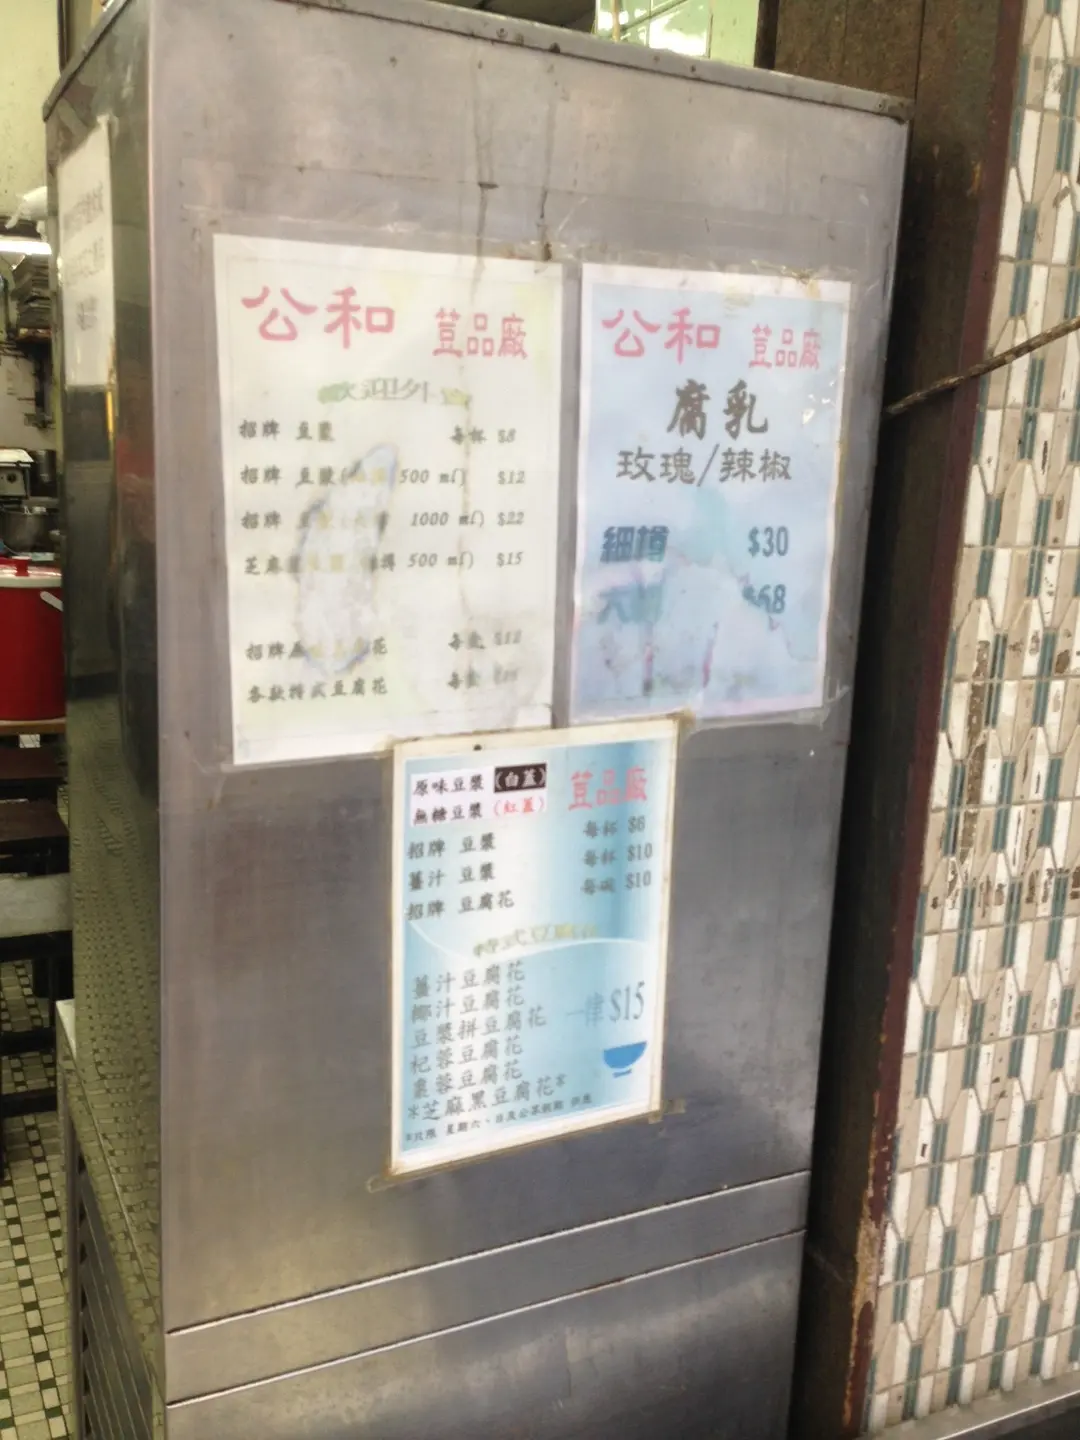 公和 荳品廠
歡迎外
招牌 豆漿 每杯 $8
招牌 豆漿 500 ml) $12
招牌 1000 ml) $22
芝麻 樽 500 ml) $15
招牌原 花 每盒 $12
各款特式豆腐花 每盒
公和 荳品廠
腐乳
玫瑰/辣椒
細樽 $30
大 $68
原味豆漿 (白蓋) 荳品廠
無糖豆漿 (紅蓋)
招牌 豆漿 每杯 $6
薑汁 豆漿 每杯 $10
招牌 豆腐花 每碗 $10
特式豆腐花
薑汁豆腐花
椰汁豆腐花
豆漿拼豆腐花 一律 $15
杞蓉豆腐花
棗蓉豆腐花
*芝麻黑豆腐花*
*只限 星期六、日及公眾假期 供應